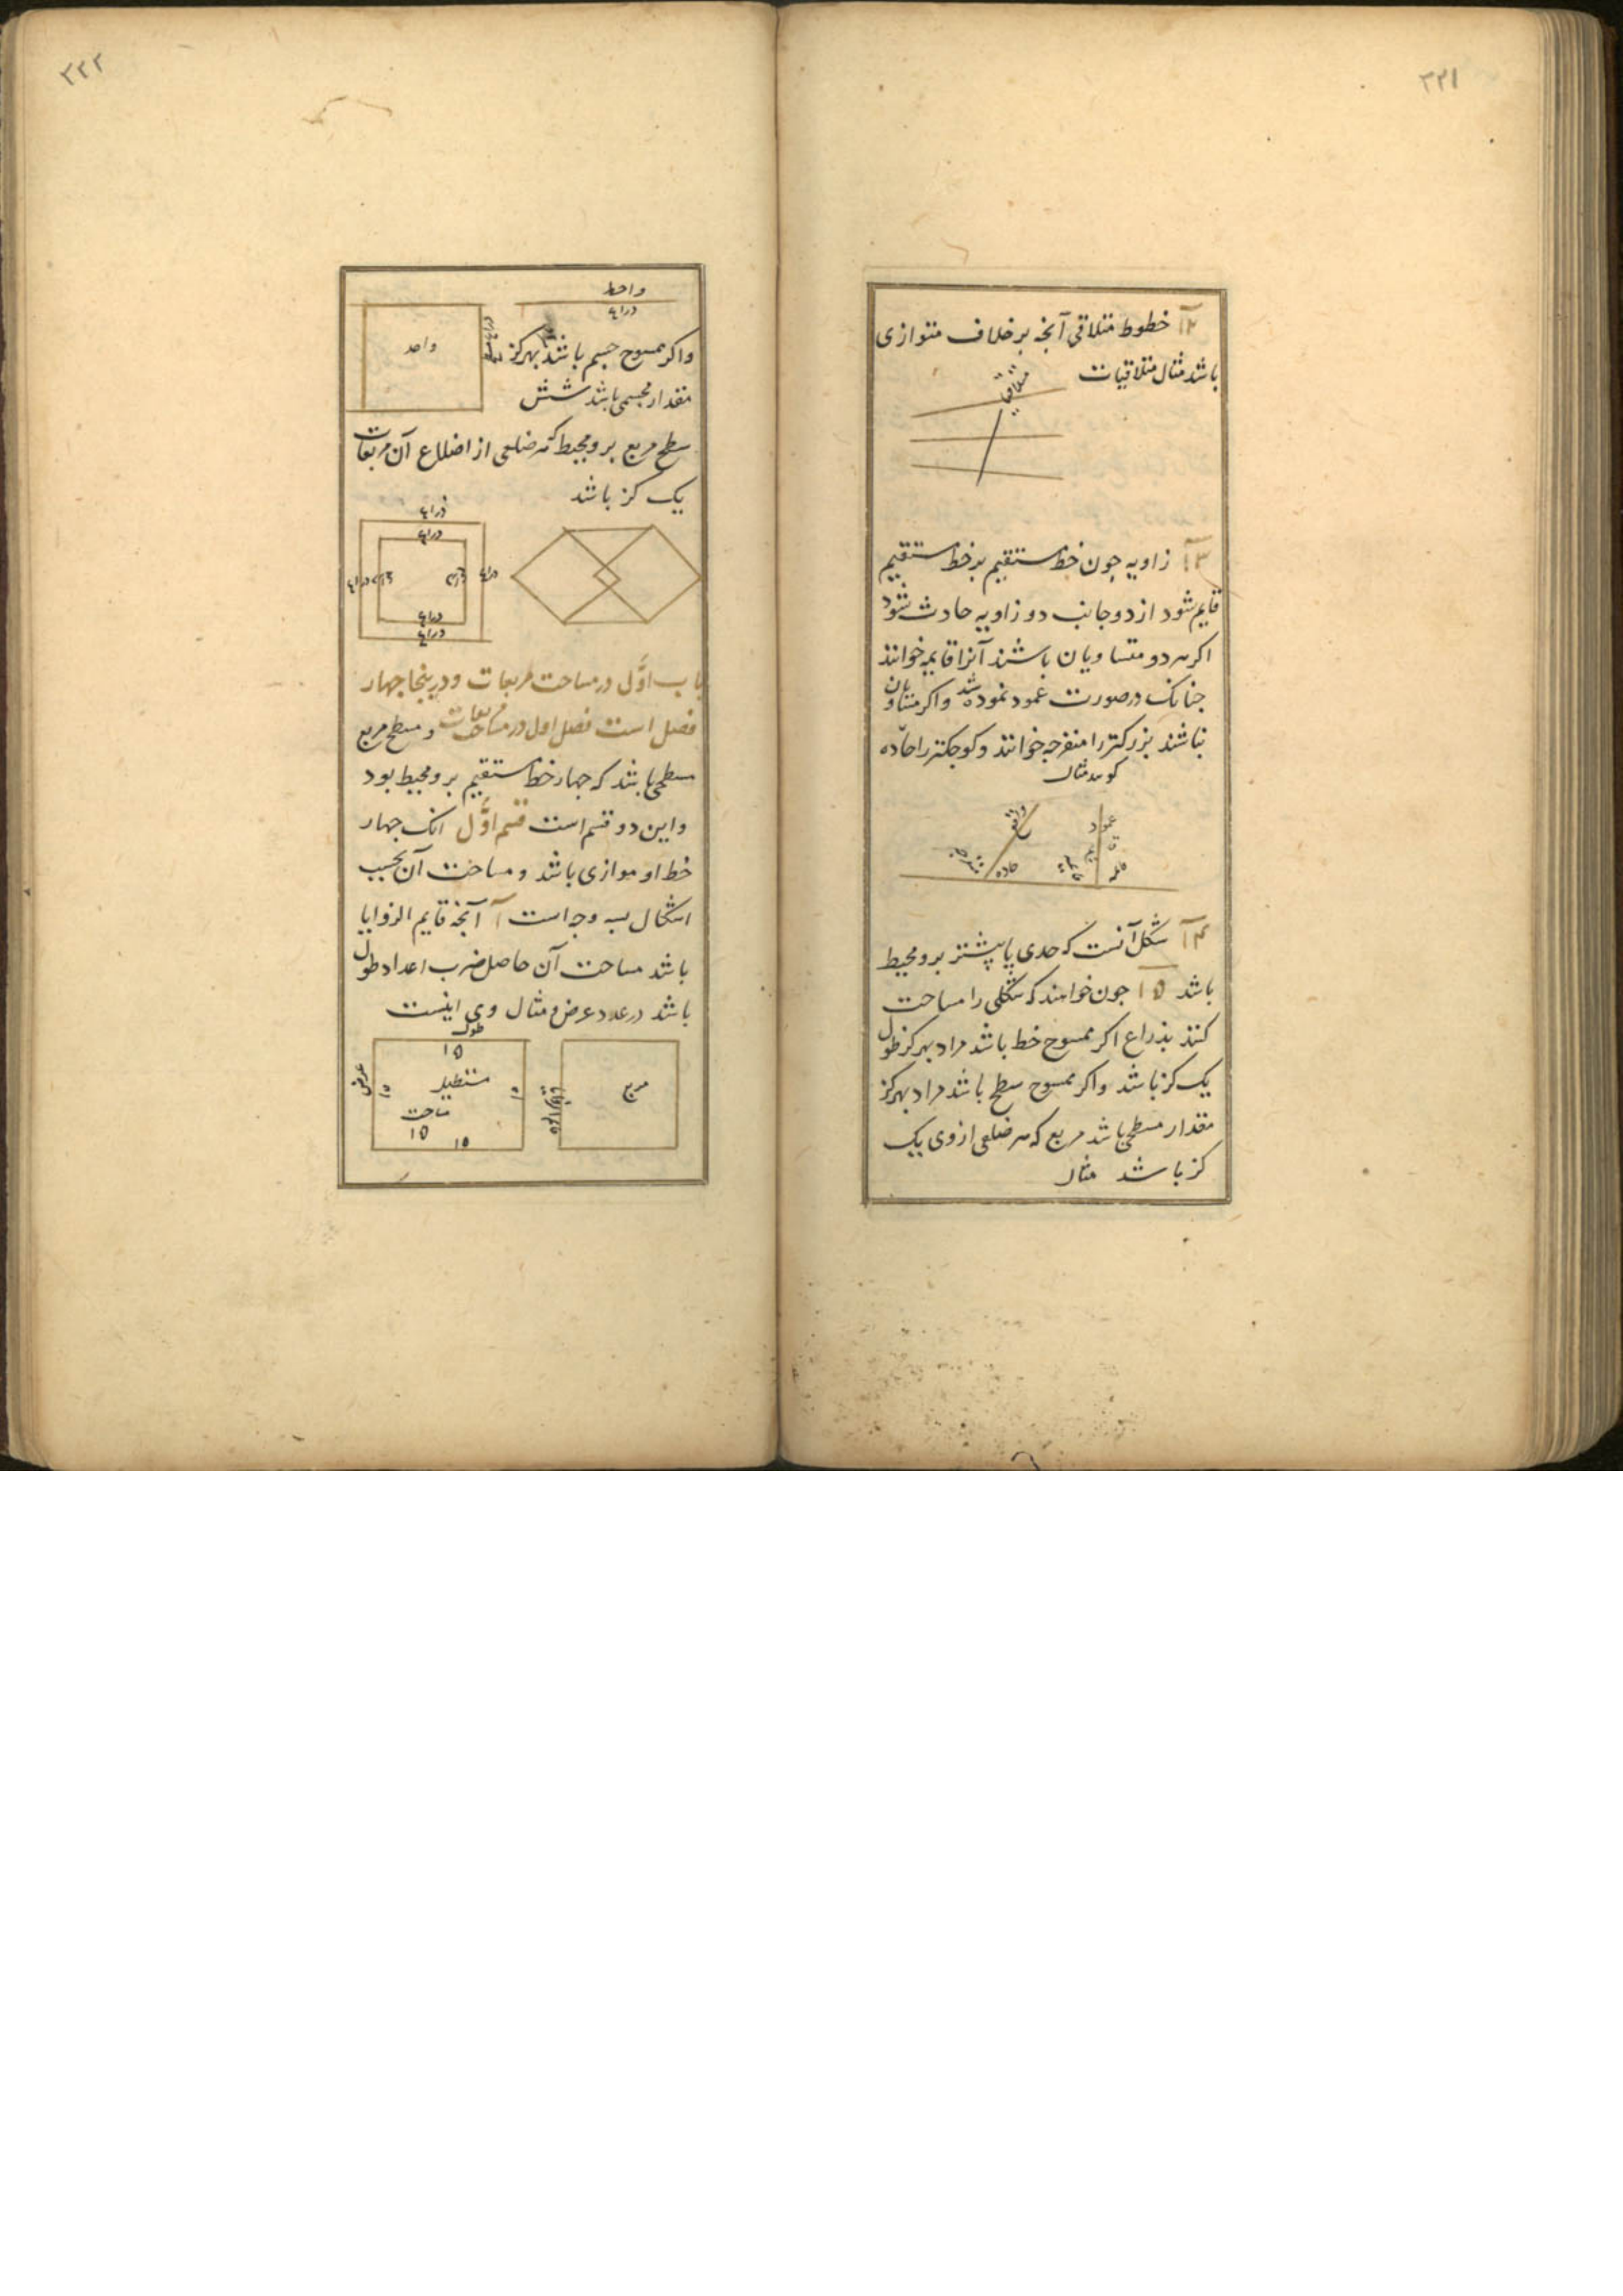 ۳۲۱
۱۲ خطوط متلاقی آنچه بر خلاف متوازی
باشد مثال متلاقیات
متلاقیات
۱۳ زاویه چون خط مستقیم بر خط مستقیم
قایم شود از دو جانب دو زاویه حادث شود
اکر هر دو متساویان باشند آنرا قایمه خوانند
جنانک در صورت عمود نموده شد واکر متساویان
نباشند بزرکتر را منفرجه خوانند و کوجکتر را حادّه
کویند مثال
عمود
قایمه
حاده
منفرجه
۱۴ شکل آنست که حدی یا بیشتر برو محیط
باشد ۱۵ جون خواهند که شکلی را مساحت
کنند بذراع اکر ممسوح خط باشد مراد بهر کز طول
یک کز باشد واکر ممسوح سطح باشد مراد بهر کز
مقدار سطحی باشد مربع که هر ضلعی از وی یک
کز باشد مثال
۳۲۲
واحد
ذراع
واحد
واکر ممسوح جسم باشد بهر کز
مقدار مجسمی باشد شش
سطح مربع برو محیط که هر ضلعی از اضلاع آن مربعات
یک کز باشد
ذراع
ذراع
ذراع
ذراع
ذراع
ذراع
باب اوَّل در مساحت مربعات و درینجا جهار
فصل است فصل اول در مساحت مربعات و سطح مربع
سطحی باشد که جهار خط مستقیم برو محیط بود
و این دو قسم است قسم اوَّل انک جهار
خط او موازی باشد و مساحت آن بحسب
اشکال سه وجه است آ آنچه قایم الزوایا
باشد مساحت آن حاصل ضرب اعداد طول
باشد در عدد عرض و مثال وی اینست
طول
۱۵
عرض
مستطیل
مساحت
۱۵
۱۵
مربع